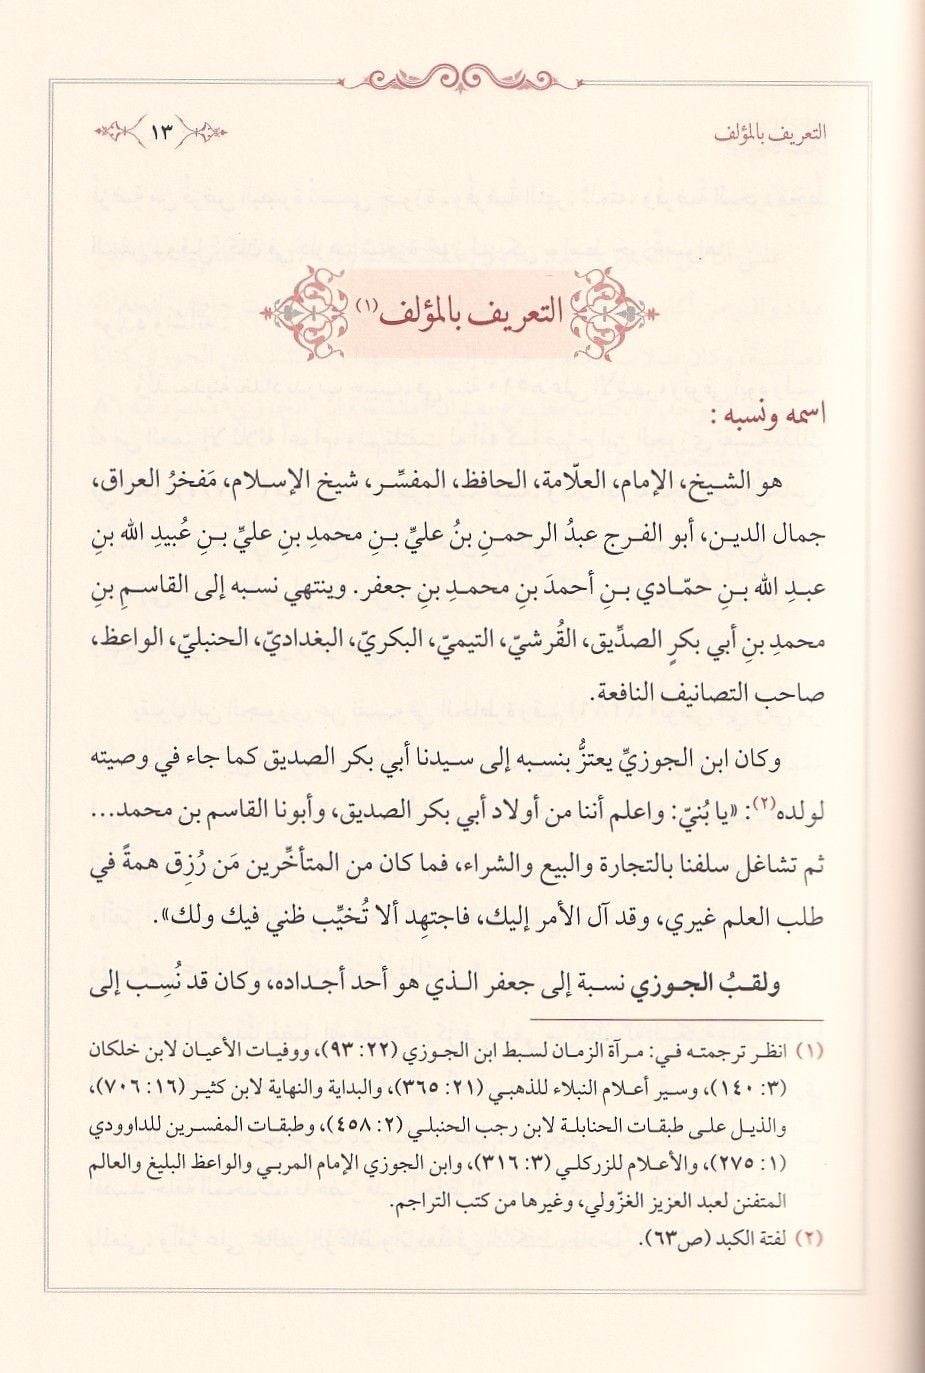 التعريف بالمؤلف
١٣
التعريف بالمؤلف(١)
اسمه ونسبه :
هو الشيخ، الإمام، العلّامة، الحافظ، المفسِّر، شيخ الإسلام، مَفخرُ العراق،
جمال الدين، أبو الفرج عبدُ الرحمنِ بنُ عليِّ بنِ محمدِ بنِ عليِّ بنِ عُبيدِ الله بنِ
عبدِ الله بنِ حمّادي بنِ أحمدَ بنِ محمدِ بنِ جعفر. وينتهي نسبه إلى القاسمِ بنِ
محمدِ بنِ أبي بكرٍ الصدِّيق، القُرشيّ، التيميّ، البكريّ، البغداديّ، الحنبليّ، الواعظ،
صاحب التصانيف النافعة.
وكان ابن الجوزيِّ يعتزُّ بنسبه إلى سيدنا أبي بكر الصديق كما جاء في وصيته
لولده(٢): «يا بُنيّ: واعلم أننا من أولاد أبي بكر الصديق، وأبونا القاسم بن محمد...
ثم تشاغل سلفنا بالتجارة والبيع والشراء، فما كان من المتأخِّرين مَن رُزِق همةً في
طلب العلم غيري، وقد آل الأمر إليك، فاجتهِد ألا تُخيِّب ظني فيك ولك».
ولقبُ الجوزي نسبة إلى جعفر الذي هو أحد أجداده، وكان قد نُسِب إلى
(١) انظر ترجمته في: مرآة الزمان لسبط ابن الجوزي (٢٢: ٩٣)، ووفيات الأعيان لابن خلكان
(٣: ١٤٠)، وسير أعلام النبلاء للذهبي (٢١: ٣٦٥)، والبداية والنهاية لابن كثير (١٦: ٧٠٦)،
والذيل على طبقات الحنابلة لابن رجب الحنبلي (٢: ٤٥٨)، وطبقات المفسرين للداوودي
(١: ٢٧٥)، والأعلام للزركلي (٣: ٣١٦)، وابن الجوزي الإمام المربي والواعظ البليغ والعالم
المتفنن لعبد العزيز الغزّولي، وغيرها من كتب التراجم.
(٢) لفتة الكبد (ص٦٣).